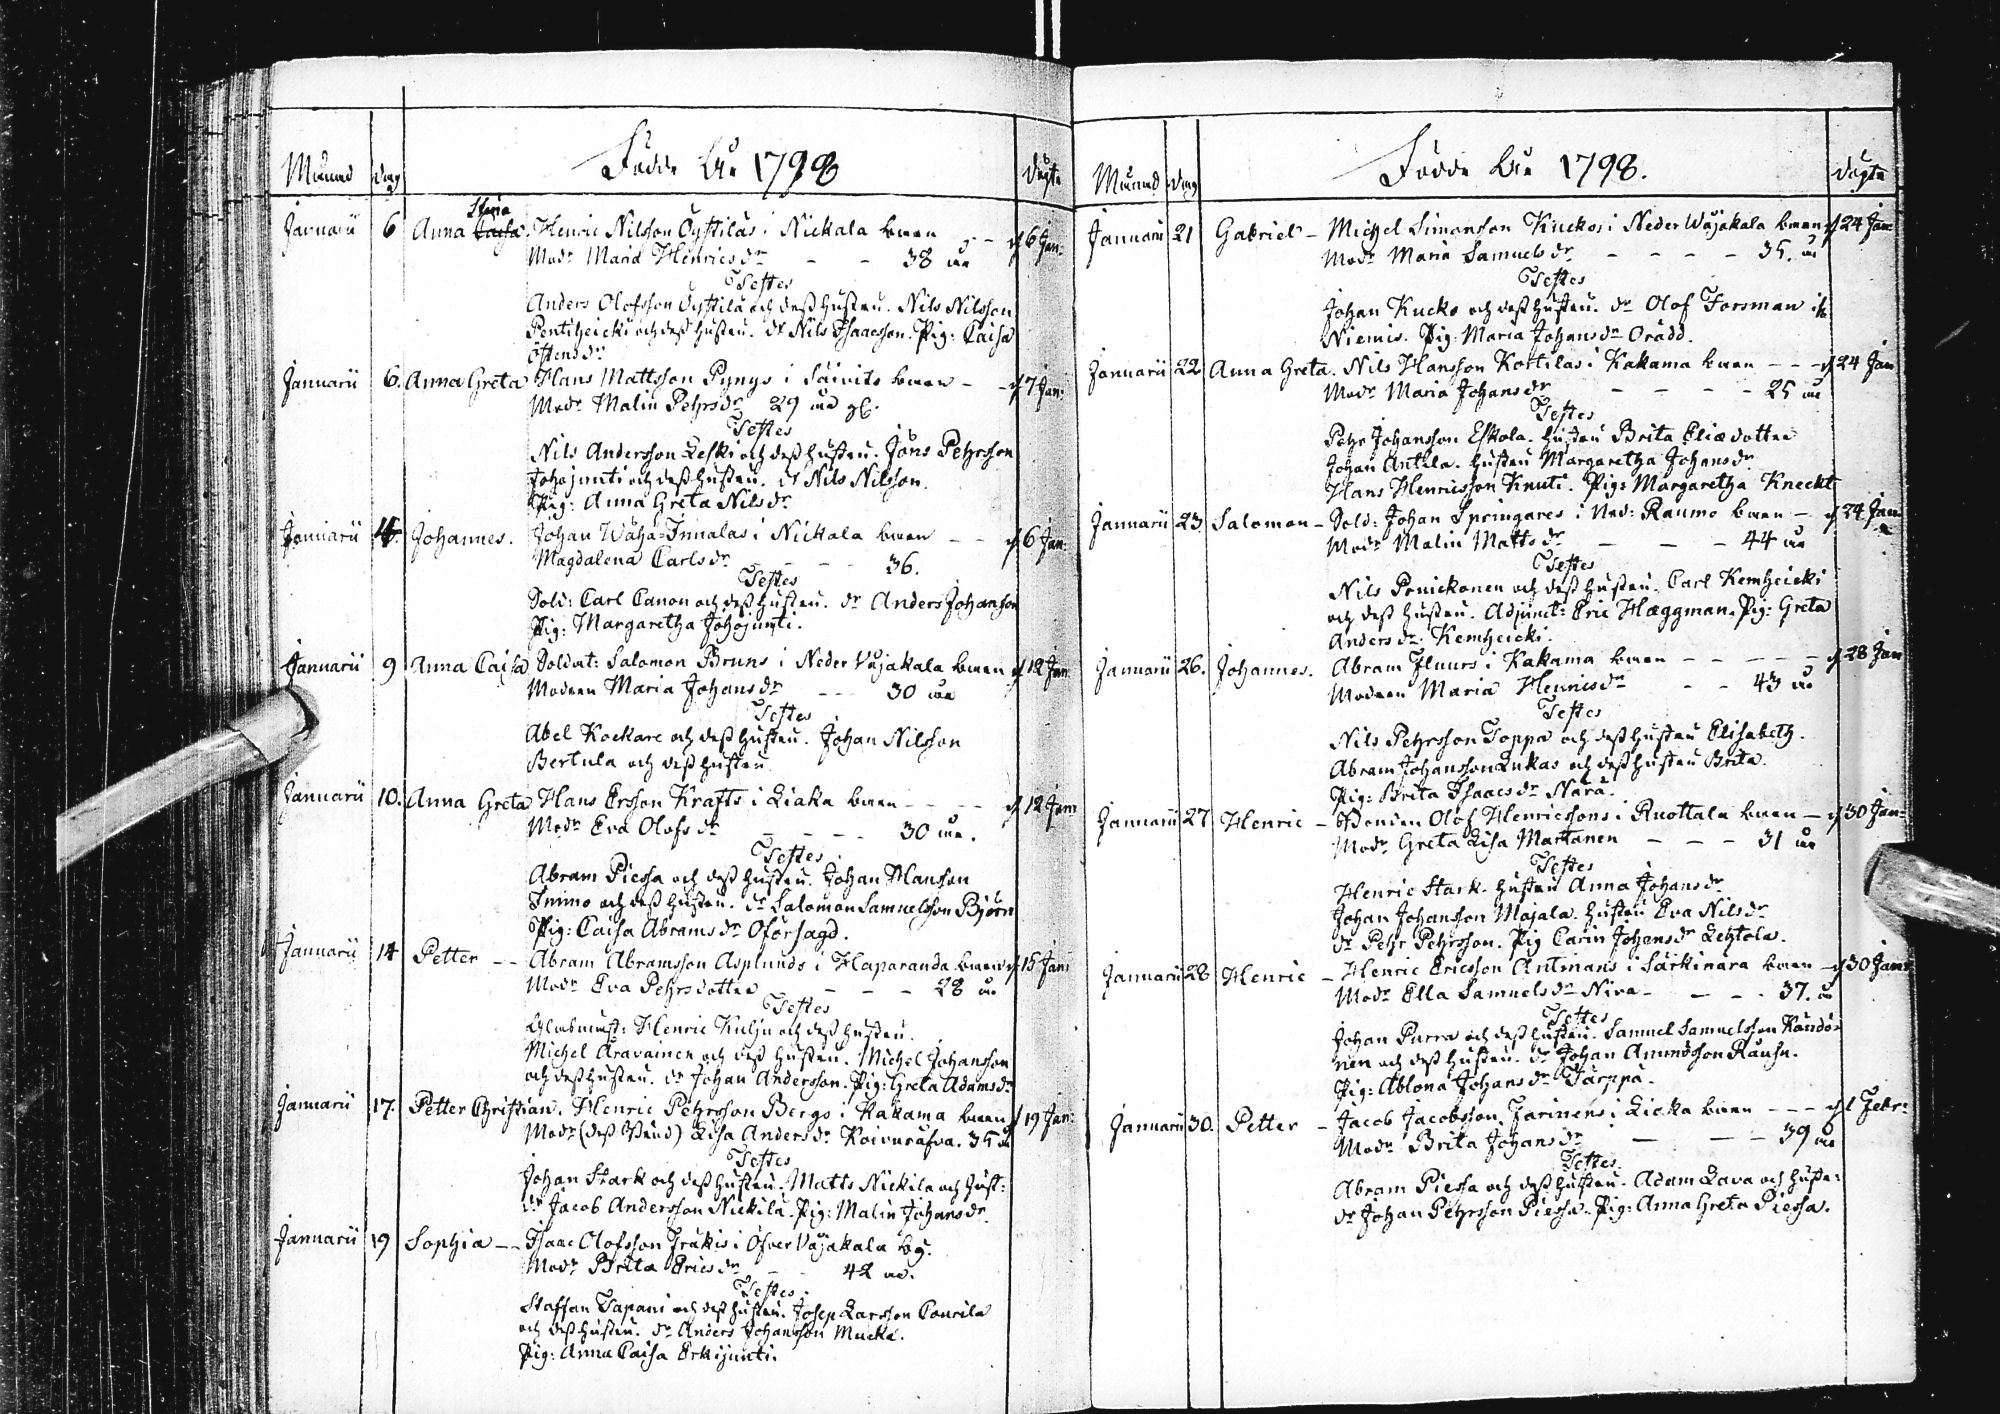 Månad dag Födde År 1798 döpte
Januarii 6 Anna Maria Caisa. Henric Nilsson Öystilas i Nickala barn - - d 6 Jan:
Modr Maria Henricsdr - - 38 år
Testes
Anders Olofsson Öystilä och dess hustru. Nils Nilsson
Pentiheicki och dess hustru. dr Nils Isaacsson. Pig: Caisa
Östensdr
Januarii 6. Anna Greta Hans Mattsson Pyngs i Säivits barn - - d 7 Jan:
Modr Malin Pehrsdr 29 år gl.
Testes
Nils Andersson Leski och dess hustru. Jöns Pehrsson
Johojunti och dess hustru. dr Nils Nilsson.
Pig: Anna Greta Nilsdr
Januarii 4. Johannes. Johan Wäha-Innalas i Nickala barn - - d 6 Jan:
Magdalena Carlsdr - - - 36.
Testes
Sold: Carl Canon och dess hustru. dr Anders Johansson
Pig: Margaretha Johojunti.
Januarii 9 Anna Caisa Soldat: Salomon Bruns i Neder Wåjakala barn d 12 Jan
Modren Maria Johansdr - - 30 år
Testes
Abel Kockare och dess hustru. Johan Nilsson
Bertula och dess hustru
Januarii 10. Anna Greta Hans Ersson Krafts i Liaka barn - - - - d 12 Jan
Modr Eva Olofsdr - - - - 30 år.
Testes
Abram Piessa och dess hustru. Johan Hansson
Immo och dess hustru. dr Salomon Samuelsson Björn
Pig: Caisa Abramsdr Oförsagd.
Januarii 14 Petter - - Abram Abramsson Asplunds i Haparanda barn d 15 Jan
Modr Eva Pehrsdotter - - - 28 år
Testes
Henric Kulju och dess hustru.
Michel Aravainen och dess hustru. Michel Johansson
och dess hustru. dr Johan Andersson. Pig: Greta Adamsdr
Januarii 17. Petter Christian. Henric Pehrsson Bergs i Kakama barn d 19 Jan:
Modr (dess Enka) Lisa Andersdr Koivuräfva. 35 år
Testes
Johan Stark och dess hustru. Matts Nickila och hust:
dr Jacob Andersson Nickilä. Pig: Malin Johansdr.
Januarii 19 Sophia - - Isaac Olofsson Iräkis i Öfver Wåjakala by.
Modr Brita Ericsdr - - 42 år.
Testes.
Staffan Tapani och dess hustru. Josep Larsson Pourila
och dess hustru. dr Anders Johansson Mucka.
Pig: Anna Caisa Erkijunti.
Månad dag Födde År 1798. döpte
Januarii 21 Gabriel - Michel Simonsson Kuckos i Neder Wåjakala barn d 24 Jan:
Modr Maria Samuelsdr - - - - 35. år
Testes
Johan Kucko och dess hustru. dr Olof Forsman ifr
Niemis. Pig: Maria Johansdr Orädd.
Januarii 22 Anna Greta. Nils Hansson Kortilas i Kakama barn - - - d 24 Jan
Modr Maria Johansdr - - - - 25 år
Testes
Pehr Johansson Eskola. hustru Brita Eliædotter
Johan Antila. hustru Margaretha Johansdr
Hans Henricsson Knuti. Pig: Margaretha Kneckt
Januarii 23 Salomon - Sold: Johan Springares i Ned: Raumo barn - d 24 Jan
Modr Malin Mattsdr - - - 44 år
Testes
Nils Ponickonen och dess hustru. Carl Kemheicki
och dess hustru. Adjunct: Eric Hæggman. Pig: Greta
Andersdr Kemheicki.
Januarii 26. Johannes. Abram Huurs i Kakama barn - - - - - d 28 Jan
Modren Maria Henricsdr - - 43 år
Testes
Nils Pehrsson Toppa och dess hustru Elisabeth.
Abram Johansson Lukas och dess hustru Brita.
Pig: Brita Isaacsdr Nara.
Januarii 27 Henric - Bonden Olof Henricssons i Ruottala barn - d 30 Jan:
Modr Greta Lisa Martanen - - - 31 år
Testes
Henric Stark. hustru Anna Johansdr
Johan Johansson Majala. hustru Eva Nilsdr
dr Pehr Pehrsson. Pig Carin Johansdr Lehtola.
Januarii 28 Henric - Henric Ericsson Antinans i Särkinära barn - d 30 Jan
Modr Ella Samuelsdr Nira - - - 37. år
Testes
Johan Purra och dess hustru. Samuel Samuelsson Kandö-
nen och dess hustru. dr Johan Amundsson Rausu.
Pig: Ablona Johansdr Tärppä.
Januarii 30. Petter - Jacob Jacobsson Jarinens i Licka barn - - - d 1 Febr:
Modr Brita Johansdr - - - 39 år
Testes
Abram Piessa och dess hustru. Adam Lava och hustr:
dr Johan Pehrsson Piessa. Pig: Anna Greta Piessa.